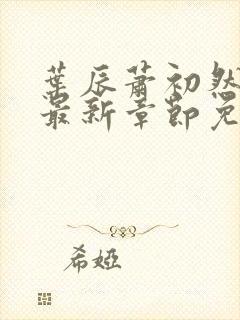 葉辰蕭初然
最新章節免
希婭